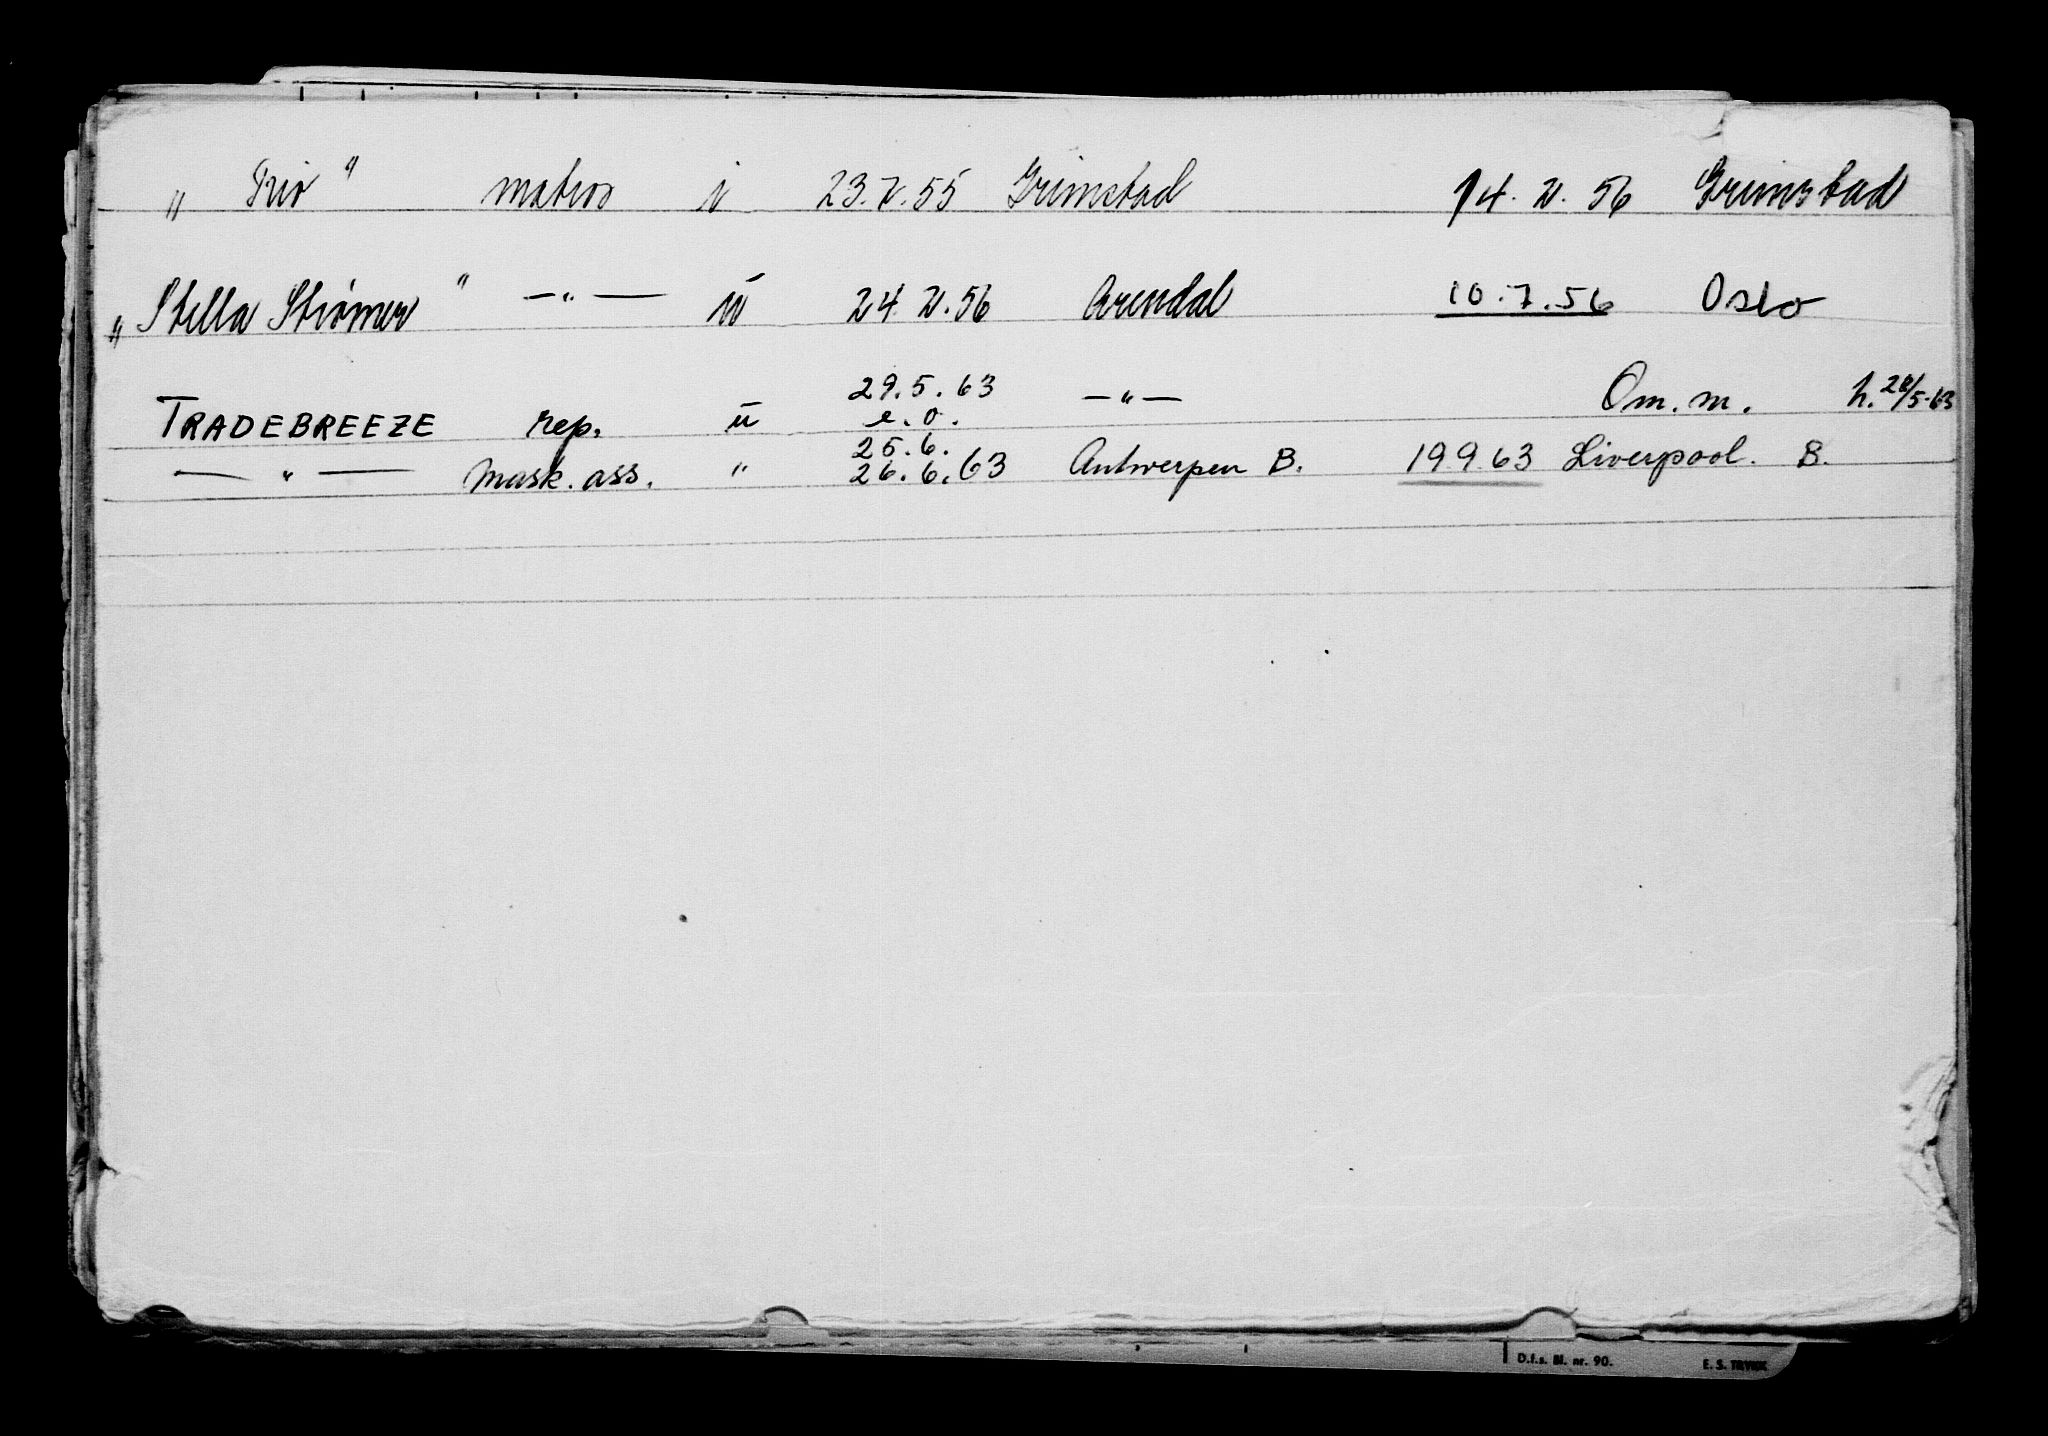 „ Trio " matros i 23.V.55 Grimstad 14. V. 56 Grimstad
„ Stella Strømer " —„— u 24. V. 56 Arendal 10.7.56 Oslo
29.5.63 —„— Om. m. h. 28/5-63
TRADEBREEZE rep. u e.o.
25.6.
—„— Mask. ass. „ 26.6.63 Antwerpen B. 19.9.63 Liverpool. B.
D.f.s. Bl. nr. 90. E. S. TRYKK